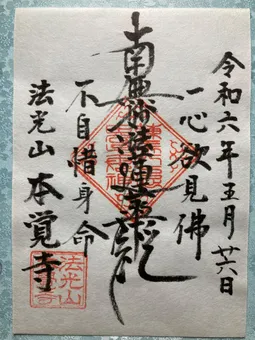 令和六年五月廿六日
一心欲見佛
南無妙法蓮華経
不自惜身命
法光山 本覚寺
法光山